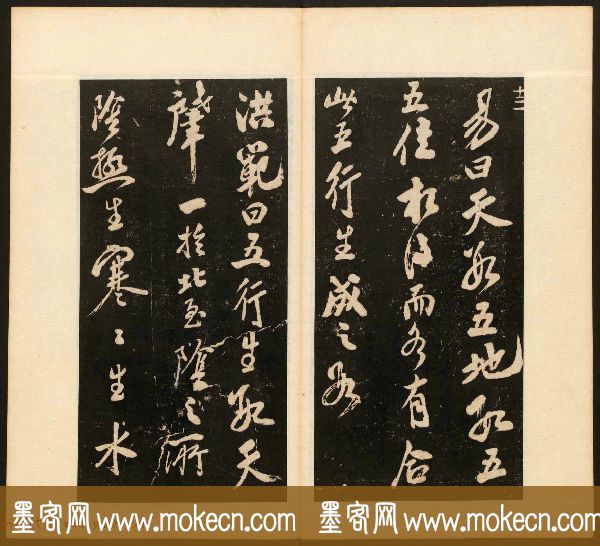 易曰天數五地數五
五位相得而各有合
此五行生成之數
洪範曰五行生數天
肇一於北至陰之所
陰極生寒〻生水
墨客网 www.mokecn.com 墨客网 www.mokecn.com